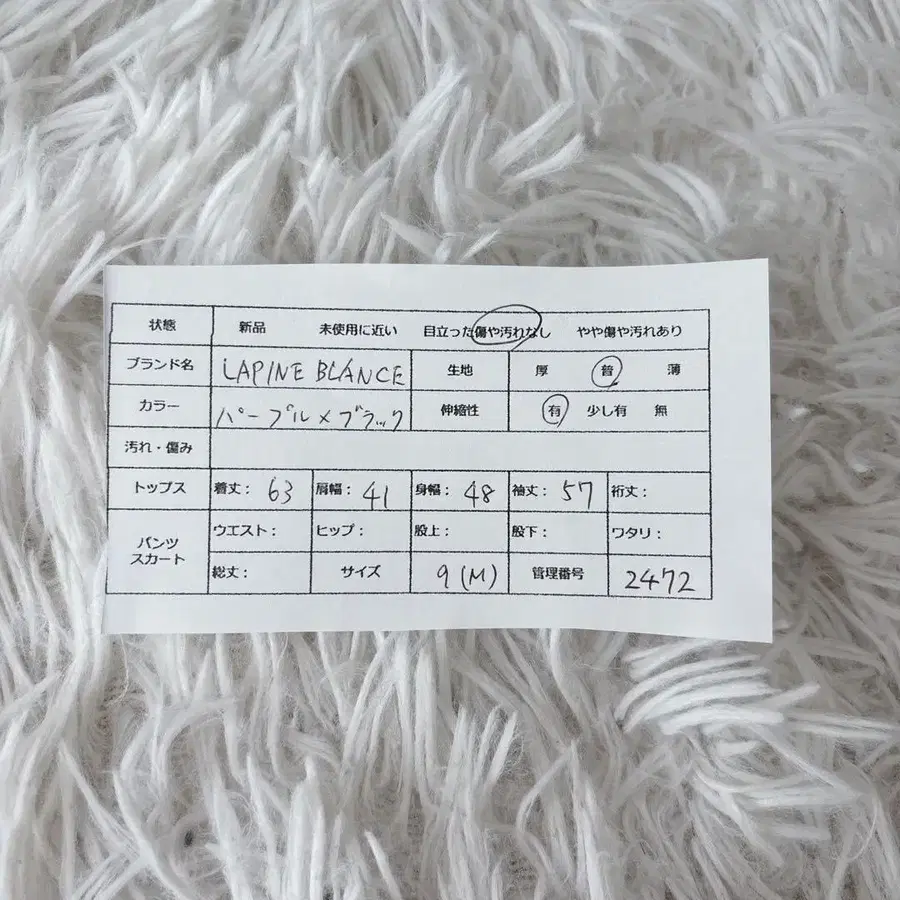 状態 新品 未使用に近い 目立った傷や汚れなし やや傷や汚れあり
ブランド名 LAPINE BLANCE 生地 厚 普 薄
カラー パープル×ブラック 伸縮性 有 少し有 無
汚れ・傷み
トップス 着丈: 63 肩幅: 41 身幅: 48 袖丈: 57 裄丈:
パンツ スカート ウエスト: ヒップ: 股上: 股下: ワタリ:
総丈: サイズ 9(M) 管理番号 2472